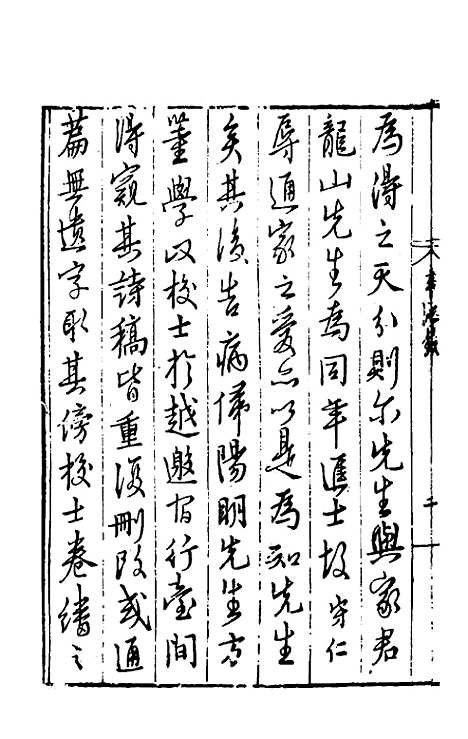 為得之天分則尔先生與家君
龍山先生為同年進士故守仁
辱通家之愛亦以是為知先生
矣其後告病歸陽明先生方
董學以校士於越邀宿行臺間
得窺其詩稿皆重復刪改或通
篇無遺字取其傍校士卷繙之
二